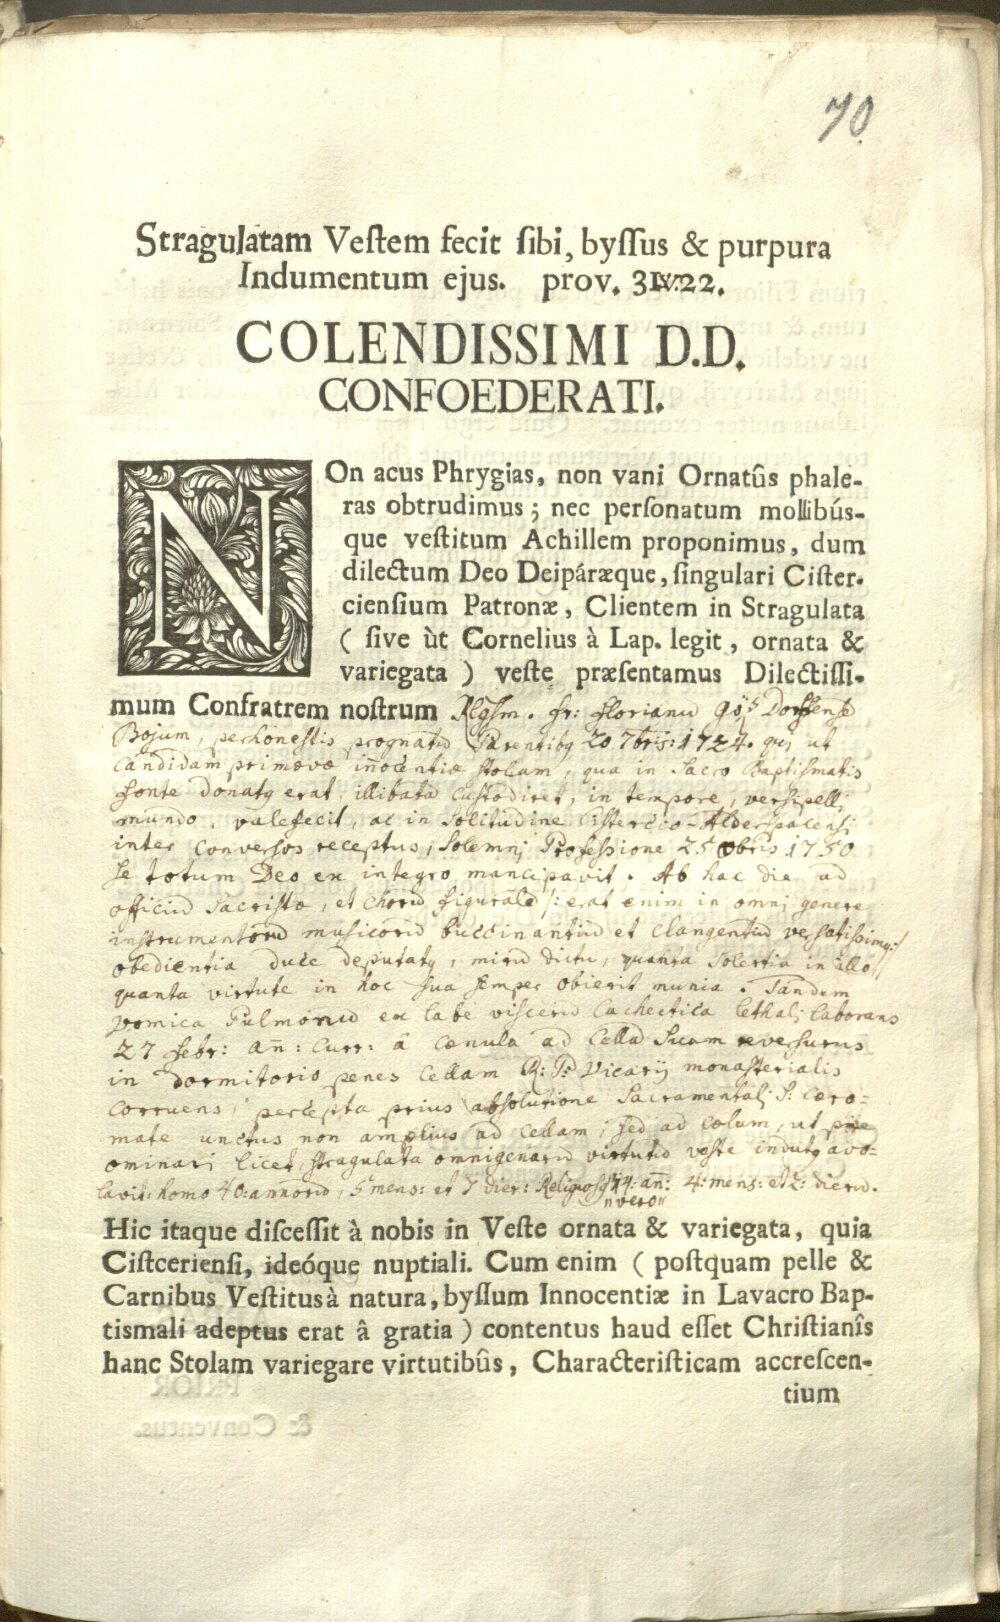 70
Stragulatam Veſtem fecit ſibi, byſſus & purpura
Indumentum ejus. prov. 31.v.22.
COLENDISSIMI D.D.
CONFOEDERATI.
NOn acus Phrygias, non vani Ornatûs phale-
ras obtrudimus; nec perſonatum mollibús-
que veſtitum Achillem proponimus, dum
dilectum Deo Deipáræque, ſingulari Ciſter-
cienſium Patronæ, Clientem in Stragulata
( ſive ùt Cornelius à Lap. legit, ornata &
variegata ) veſte præſentamus Dilectiſſi-
mum Confratrem noſtrum Rlgsm. Fr: Florianū
Bojum, perhonestis prognatū Parentibꝗ 20 7bris: 1724. qui ut
Candidam primævæ iñocentiæ stolam, qua in Sacro Baptismatis
fonte donatꝗ erat, illibatā custodiret, in tempore, versipelli
mundo valefecit, ac in Solitudine Cistercio-Alderspacensi
inter conversos receptus, Solemni Professione 25 8bris 1750
se totum Deo ex integro mancipavit. Ab hac die ad
officiū Sacristæ, et Chorū figuralē /: erat enim in omni genere
instrumentorū musicorū buccinantiū et Clangentiū versatissimꝗ:/
obedientia duce deputatꝗ, mirū dictu, quanta Solertia in illo,
quanta virtute in hoc sua semper obierit munia. Tandem
vomica Pulmonū ex labe viscerū Cachectica lethali laborans
27 Febr: añ: Curr: à cœnula ad Cellā Suam reversurus
in dormitorio penes Cellam R: P: Vicarij monasterialis
corruens, percepta prius absolutione Sacramentali S: Cero-
mate unctus non amplius ad Cellam, sed ad Cœlum, ut piè
ominari licet, stragulata omnigenarū virtutū veste indutꝗ avo-
lavit: homo 40: annorū, 5 mens: et 7 dier: Religiosꝗ 14: añ: 4: mens: et 2: dierū.
"vero"
Hic itaque diſceſſit à nobis in Veſte ornata & variegata, quia
Ciſtcerienſi, ideóque nuptiali. Cum enim ( poſtquam pelle &
Carnibus Veſtitus à natura, byſſum Innocentiæ in Lavacro Bap-
tismali adeptus erat â gratia ) contentus haud eſſet Chriſtianîs
hanc Stolam variegare virtutibûs, Characteriſticam accreſcen-
tium